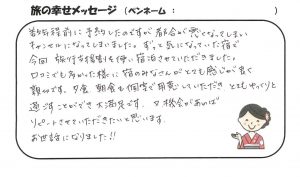 旅の幸せメッセージ（ペンネーム：　　　　）
数年程前に予約したのですが都合が悪くなってしまい
キャンセルになってしまいました。ずっと気になっていた宿で
今回 旅行支援割を使い宿泊させていただきました。
口コミでも有った様に宿のみなさんがとても感じが良く
親切です。夕食、朝食も個室で用意していただき とてもゆっくりと
過すことができ大満足です。又機会があれば
リピートさせていただきたいと思います。
お世話になりました!!